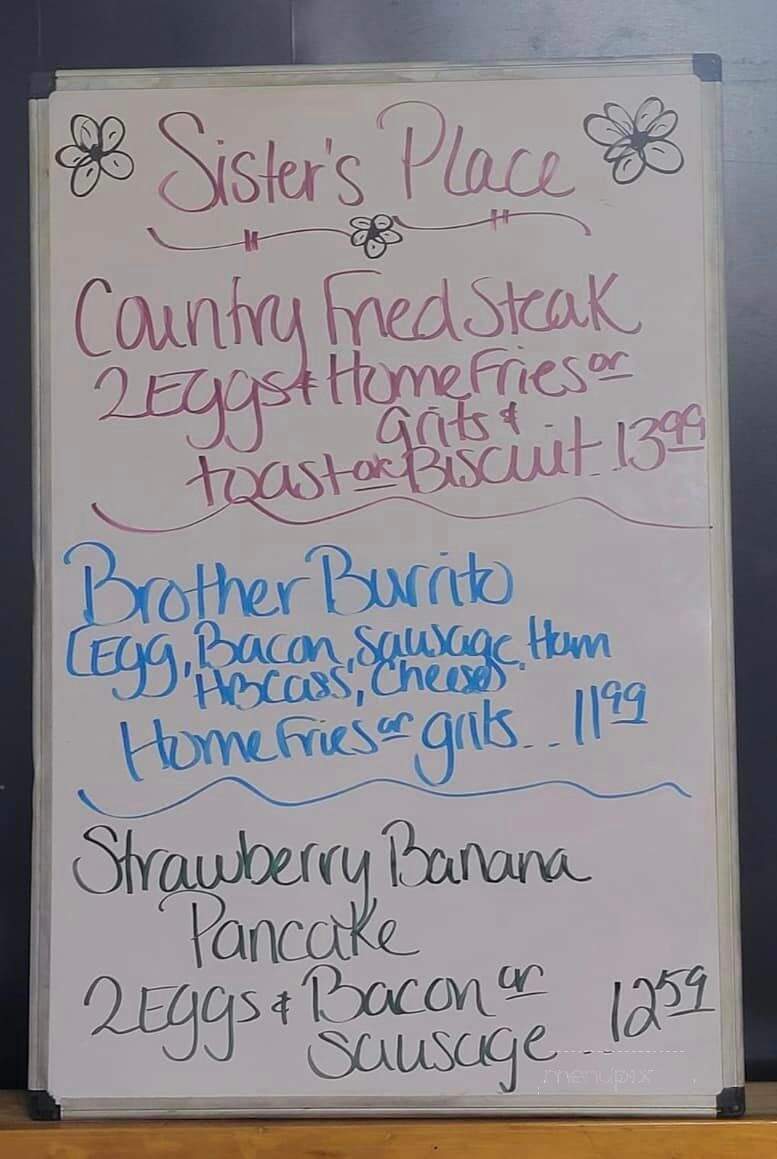 Sister's Place
Country Fried Steak
2 Eggs & Home Fries or
grits &
toast or Biscuit.. 13.99
Brother Burrito
(Egg, Bacon, Sausage, Ham
HBCass, Cheese)
Home Fries or grits... 11.99
Strawberry Banana
Pancake
2 Eggs & Bacon or
sausage... 12.59
menupix